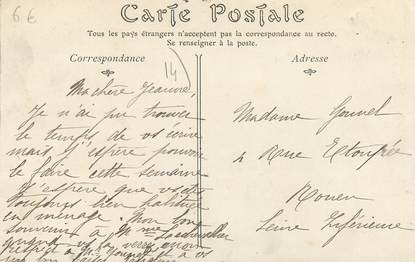 6€
Carte Postale
Tous les pays étrangers n'acceptent pas la correspondance au recto.
Se renseigner à la poste.
Correspondance
14
Ma chère Jeanne,
Je n'ai pu trouver
le temps de vs écrire
mais j'espère pouvoir
le faire cette semaine
J'espère que vs êtes
toujours bien
en ménage. Mon bon
souvenir à Mme
quand vs la verrez
à vs
Adresse
Madame
2 Rue Etoupée
Rouen
Seine Inférieure